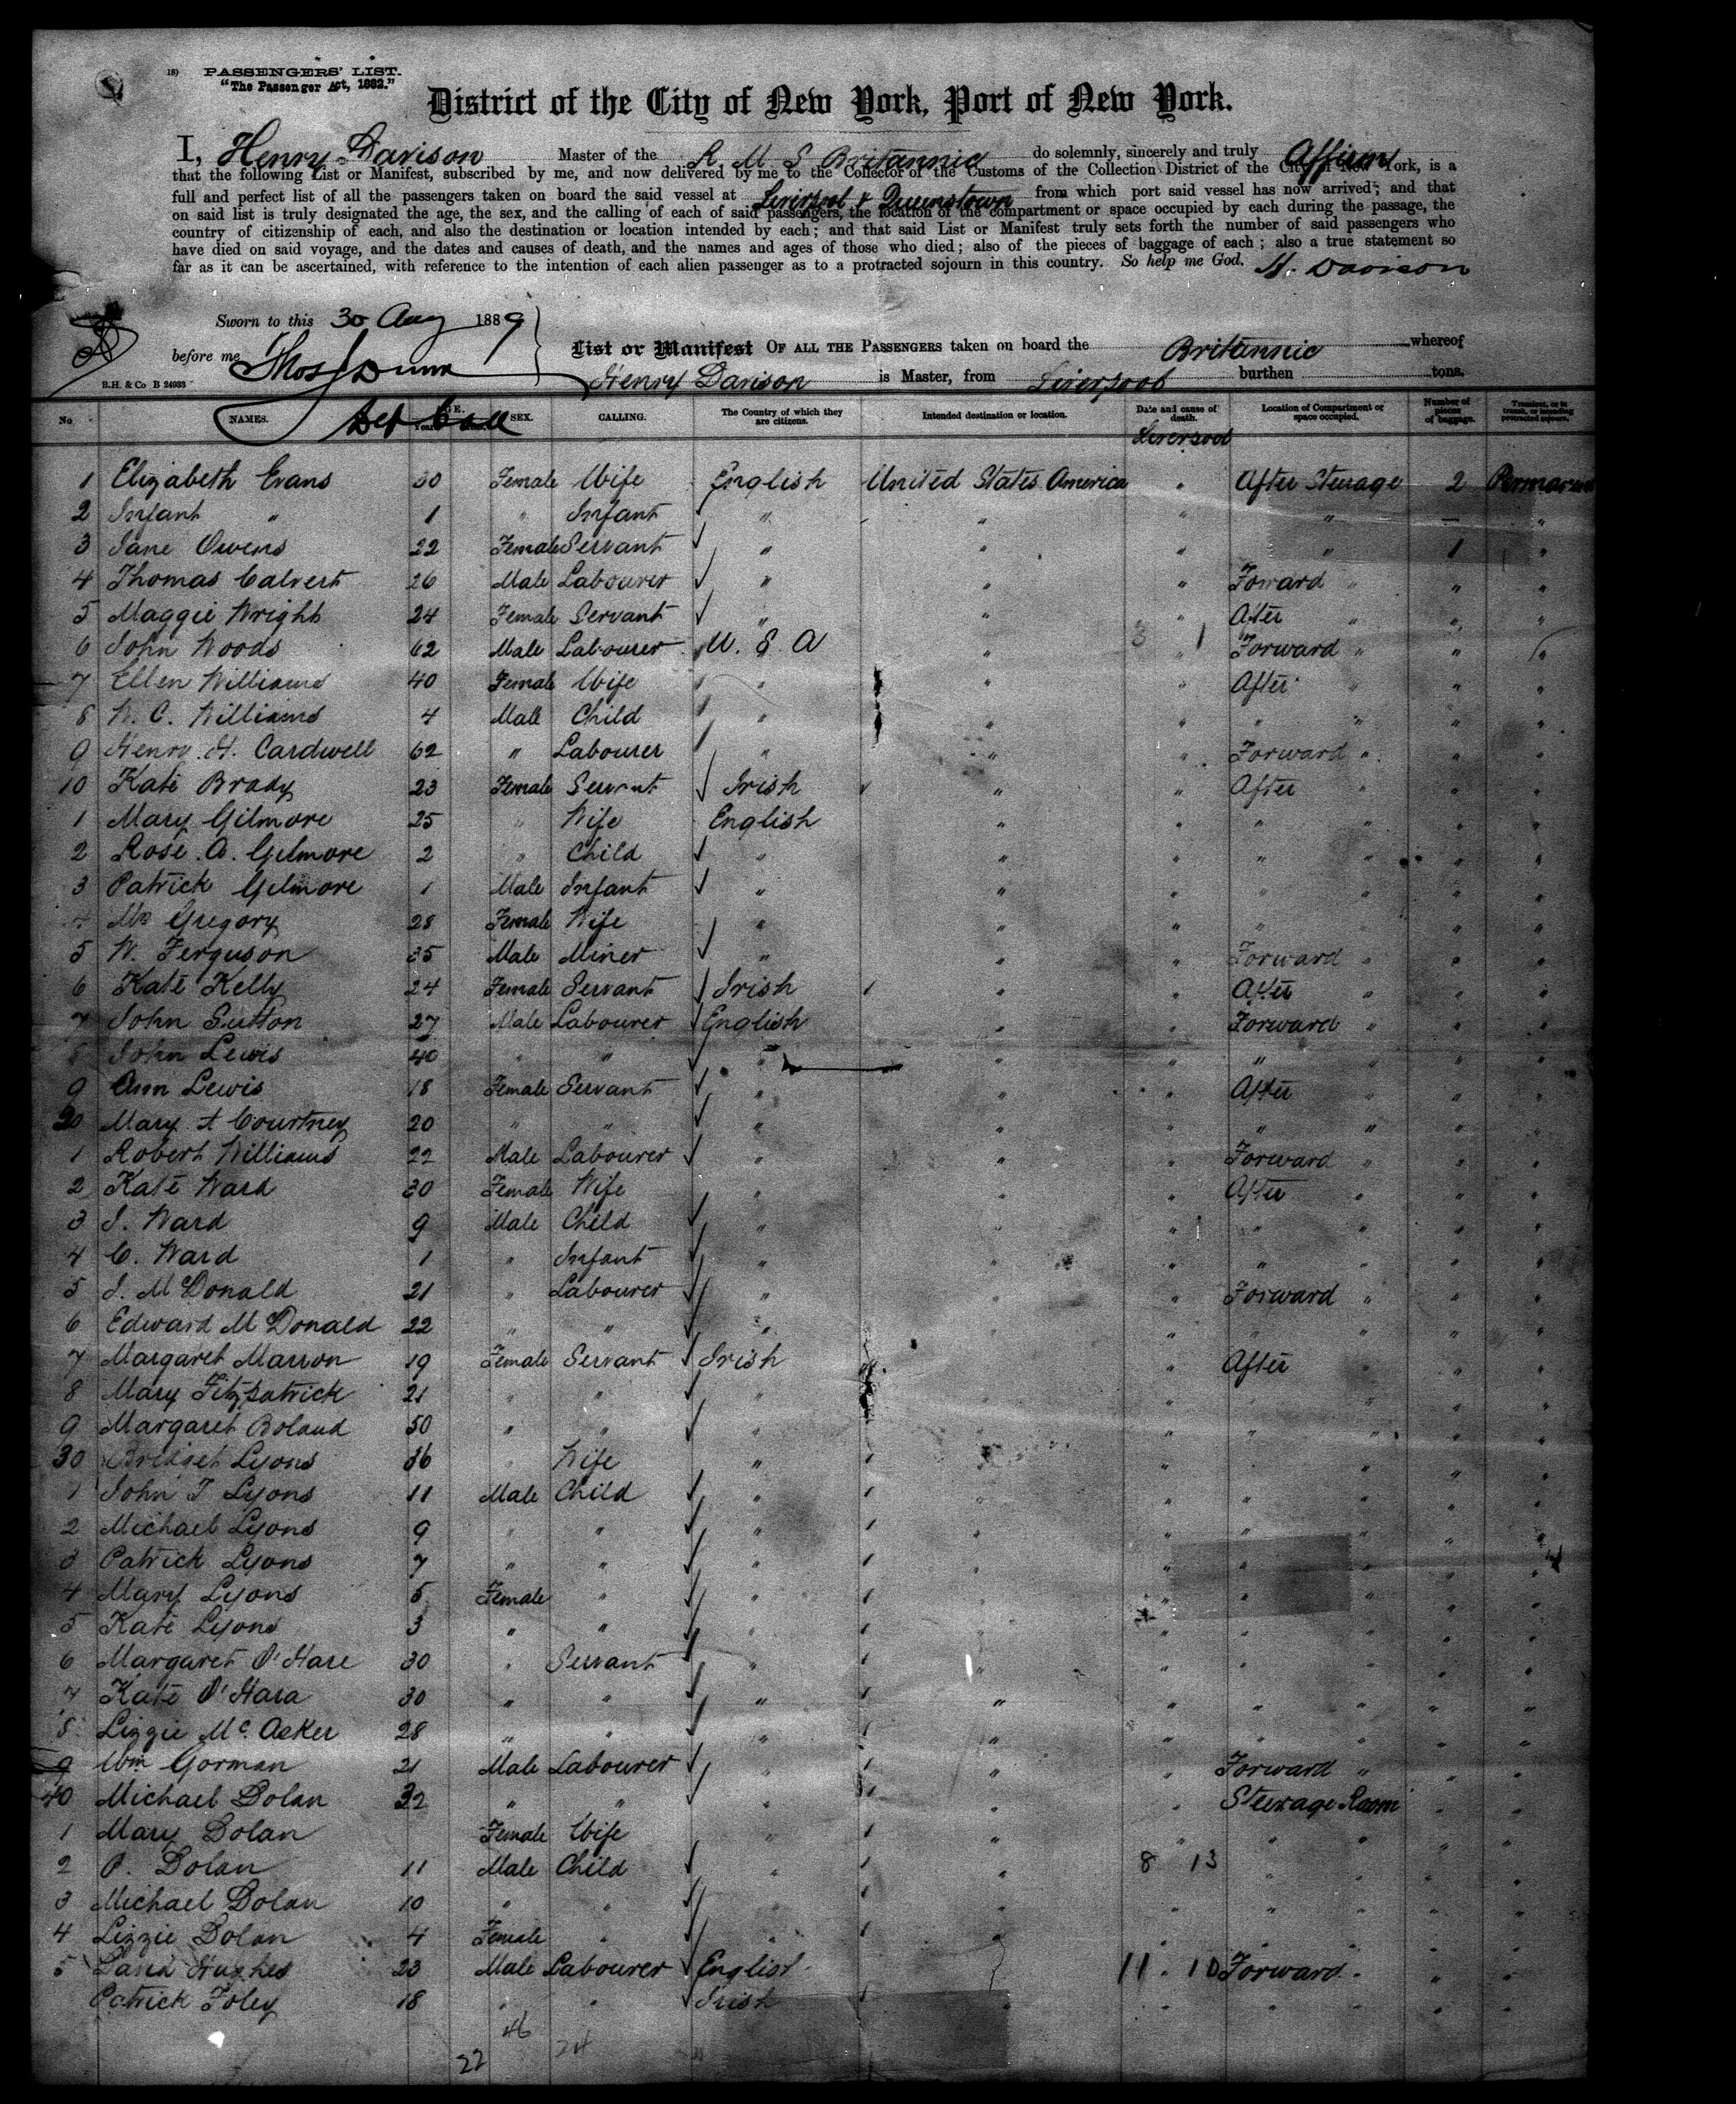 18) PASSENGERS' LIST.
"The Passenger Act, 1882."
District of the City of New York, Port of New York.
I, Henry Davison Master of the R M S Britannic do solemnly, sincerely and truly Affirm
that the following List or Manifest, subscribed by me, and now delivered by me to the Collector of the Customs of the Collection District of the City of New York, is a
full and perfect list of all the passengers taken on board the said vessel at Liverpool & Queenstown from which port said vessel has now arrived; and that
on said list is truly designated the age, the sex, and the calling of each of said passengers, the location of the compartment or space occupied by each during the passage, the
country of citizenship of each, and also the destination or location intended by each; and that said List or Manifest truly sets forth the number of said passengers who
have died on said voyage, and the dates and causes of death, and the names and ages of those who died; also of the pieces of baggage of each; also a true statement so
far as it can be ascertained, with reference to the intention of each alien passenger as to a protracted sojourn in this country. So help me God. H. Davison
Sworn to this 30 Aug 1889
before me Thos J Dunn
List or Manifest OF ALL THE PASSENGERS taken on board the Britannic whereof
B.H. & Co B 24933
Henry Davison is Master, from Liverpool burthen tons.
No NAMES. AGE. Years SEX. CALLING. The Country of which they are citizens. Intended destination or location. Date and cause of death. Location of Compartment or space occupied. Number of pieces of baggage. Transient, or in transit, or intending protracted sojourn.
Liverpool
1 Elizabeth Evans 30 Female Wife English United States America " After Steerage 2 Permanent
2 Infant " 1 " Infant " " " " — "
3 Jane Owens 22 Female Servant " " " " 1 "
4 Thomas Calvert 26 Male Labourer " " " Forward " " "
5 Maggie Wright 24 Female Servant " " " After " " "
6 John Woods 62 Male Labourer U. S. A " 3 1 " Forward " " "
7 Ellen Williams 40 Female Wife " " " After " " "
8 W. C. Williams 4 Male Child " " " " " " "
9 Henry H. Cardwell 62 " Labourer " " " Forward " " "
10 Kate Brady 23 Female Servant Irish " " After " " "
1 Mary Gilmore 25 " Wife English " " " " " "
2 Rose A. Gilmore 2 " Child " " " " " " "
3 Patrick Gilmore 1 Male Infant " " " " " " "
4 Mrs Gregory 28 Female Wife " " " " " " "
5 W. Ferguson 35 Male Miner " " " Forward " " "
6 Kate Kelly 24 Female Servant Irish " " After " " "
7 John Sutton 27 Male Labourer English " " Forward " " "
8 John Lewis 40 " " " " " " " " "
9 Ann Lewis 18 Female Servant " " " After " " "
20 Mary A Courtney 20 " " " " " " " " "
1 Robert Williams 22 Male Labourer " " " Forward " " "
2 Kate Ward 30 Female Wife " " " After " " "
3 J. Ward 9 Male Child " " " " " " "
4 C. Ward 1 " Infant " " " " " " "
5 J. McDonald 21 " Labourer " " " Forward " " "
6 Edward McDonald 22 " " " " " " " " "
7 Margaret Marron 19 Female Servant Irish " " After " " "
8 Mary Fitzpatrick 21 " " " " " " " " "
9 Margaret Boland 50 " " " " " " " " "
30 Bridget Lyons 36 " Wife " " " " " " "
1 John T Lyons 11 Male Child " " " " " " "
2 Michael Lyons 9 " " " " " " " " "
3 Patrick Lyons 7 " " " " " " " " "
4 Mary Lyons 5 Female " " " " " " " "
5 Kate Lyons 3 " " " " " " " " "
6 Margaret O'Hare 30 " Servant " " " " " " "
7 Kate O'Hara 30 " " " " " " " " "
8 Lizzie Mc. 28 " " " " " " " " "
9 Wm Gorman 21 Male Labourer " " " Forward " " "
40 Michael Dolan 32 " " " " " Steerage Room " "
1 Mary Dolan Female Wife " " " " " " "
2 P. Dolan 11 Male Child " " 8 13 " " " "
3 Michael Dolan 10 " " " " " " " " "
4 Lizzie Dolan 4 Female " " " " " " " "
5 David Hughes 23 Male Labourer English 11 . 10 Forward " " "
Patrick Foley 18 " " Irish " " " " " "
46
22 24